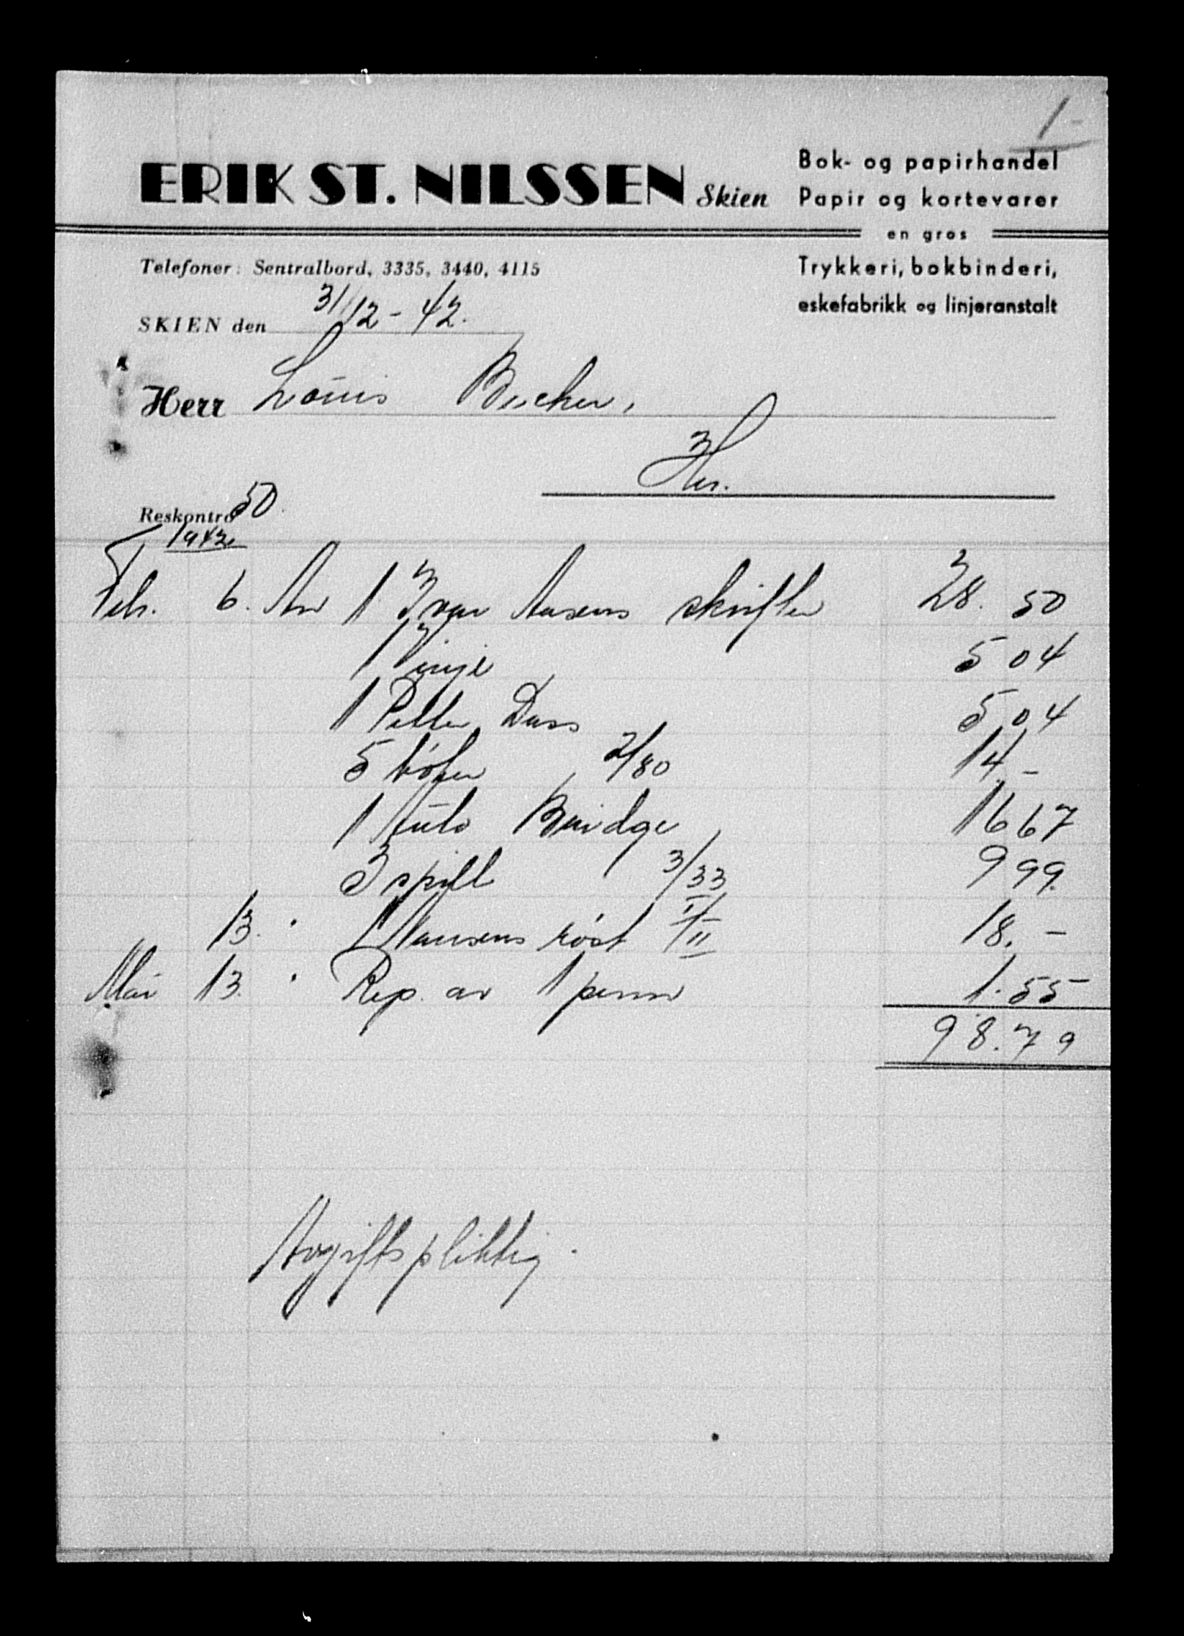 1-
ERIK ST. NILSSEN Skien
Bok- og papirhandel
Papir og kortevarer
en gros
Trykkeri, bokbinderi,
eskefabrikk og linjeranstalt
Telefoner: Sentralbord, 3335, 3440, 4115
SKIEN den 31/12-42.
Herr Louis Becker,
Her.
Reskontro 50
1942
Febr. 6. An 1 Ivar Aasens skrifter 28.50
1 Vinje 5 04
1 Petter Dass 5 04
5 bøker 2/80 14.-
1 Auto Bridge 16 67
3 spill 3/33 9 99
13. " 1 Nansens røst I/II 18.-
Mar 13. " Rep. av 1 penn 1.55
98.79
Avgiftspliktig.